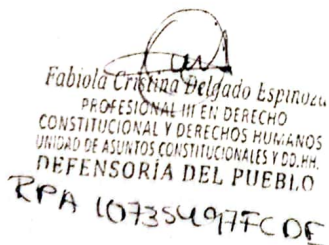 Fabiola Cristina Delgado Espinoza
PROFESIONAL III EN DERECHO
CONSTITUCIONAL Y DERECHOS HUMANOS
UNIDAD DE ASUNTOS CONSTITUCIONALES Y DD.HH.
DEFENSORÍA DEL PUEBLO
RPA 10735497FCDE